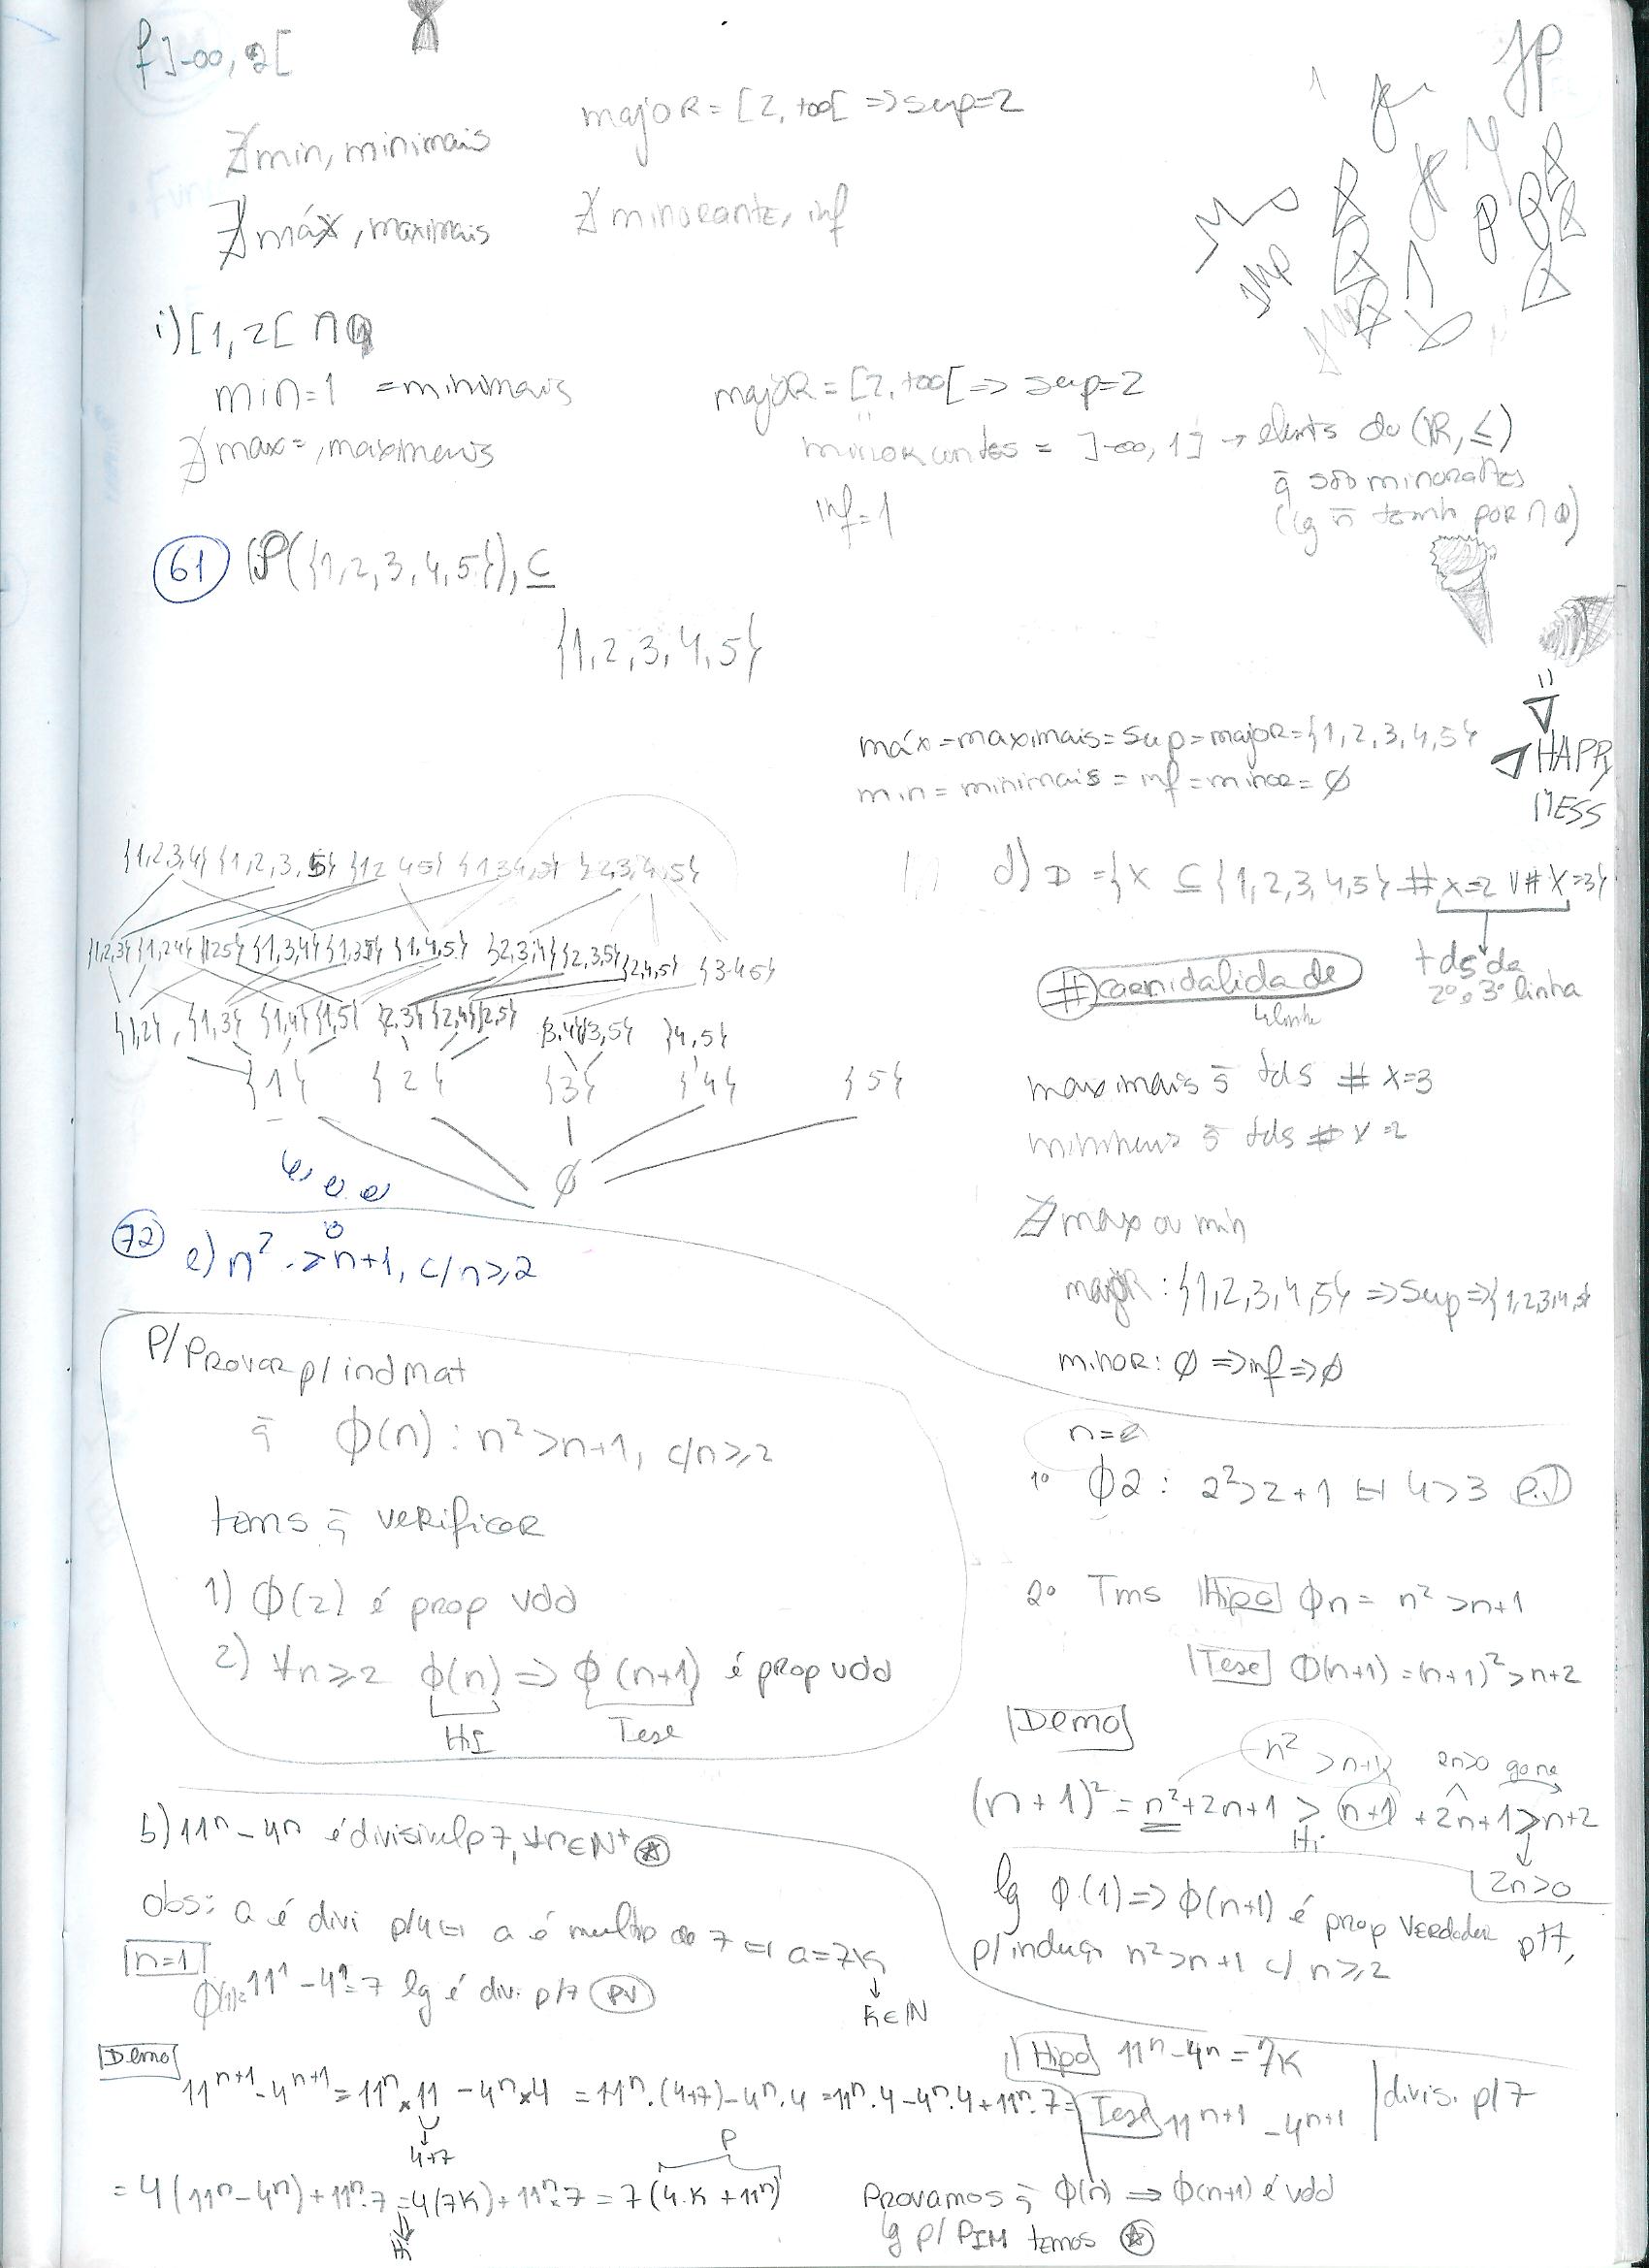 f ]-∞, 2[
majoR = [2, +∞[ => sup=2
∄ min, minimais
∄ máx, maximais
∄ minorante, inf
JP
i) [1, 2[ ∩ Q
min=1 = minimais
∄ max=, maximais
majoR = [2, +∞[ => sup=2
minorantes = ]-∞, 1] → elemts do (R, ≤)
q̄ são minorantes
(lg n̄ tomh por ∩ Q)
inf=1
61 (P({1,2,3,4,5}), ⊆
{1,2,3,4,5}
máx=maximais=sup=majoR={1,2,3,4,5}
min=minimais=inf=minor=∅
HAPPY
MESS
{1,2,3,4} {1,2,3,5} {1245} {1345} {2,3,4,5}
{1,2,3} {1,24} {125} {1,3,4} {1,35} {1,4,5} {2,3,4} {2,3,5} {2,4,5} {3,4,5}
{1,2}, {1,3} {1,4} {1,5} {2,3} {2,4} {2,5} {3,4} {3,5} {4,5}
{1} {2} {3} {4} {5}
∅
d) D = {X ⊆ {1,2,3,4,5} # X=2 V # X=3}
tds da
2º e 3º linha
# carnidalidade
maximais s̄ tds # X=3
minimais s̄ tds # X=2
∄ max ou min
majoR: {1,2,3,4,5} => Sup => {1,2,3,4,5}
minoR: ∅ => inf => ∅
72 e) n² > n+1, c/ n≥2
P/ Provar p/ indmat
q̄ ϕ(n): n² > n+1, c/n≥2
toms q̄ verificar
1) ϕ(2) é prop vdd
2) ∀n≥2 ϕ(n) => ϕ(n+1) é prop vdd
HI Tese
n=2
1º ϕ2: 2²>2+1 ⇔ 4>3 P.V
2º Tms Hipo ϕn = n²>n+1
Tese ϕ(n+1) = (n+1)²>n+2
Demo
n² > n+1 2n>0
(n+1)² = n²+2n+1 > n+1 +2n+1 > n+2
Hi
2n>0
lg ϕ(1) => ϕ(n+1) é prop verdader ptt,
p/ induçã n²>n+1 c/ n≥2
b) 11ⁿ - 4ⁿ é divisivel p 7, ∀n∈N⁺ ☆
obs: a é divi p/4 ⇔ a é multip de 7 ⇔ a=7k
k∈IN
n=1
ϕ(1)= 11¹ - 4¹=7 lg é divi p/7 PV
Hipo 11ⁿ-4ⁿ = 7k
Tese 11ⁿ⁺¹ - 4ⁿ⁺¹ divis. p/7
Demo
11ⁿ⁺¹-4ⁿ⁺¹ = 11ⁿ×11 - 4ⁿ×4 = 11ⁿ.(4+7)-4ⁿ.4 = 11ⁿ.4-4ⁿ.4+11ⁿ.7=
4+7
P
= 4(11ⁿ-4ⁿ)+11ⁿ.7 = 4(7k)+11ⁿ.7 = 7(4.k+11ⁿ)
Hi
Provamos q̄ ϕ(n) => ϕ(n+1) é vdd
lg p/ PIM temos ☆